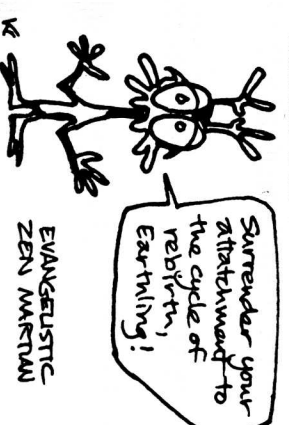 Surrender your
attatchment to
the cycle of
rebirth,
Earthling!
EVANGELISTIC
ZEN MARTIAN